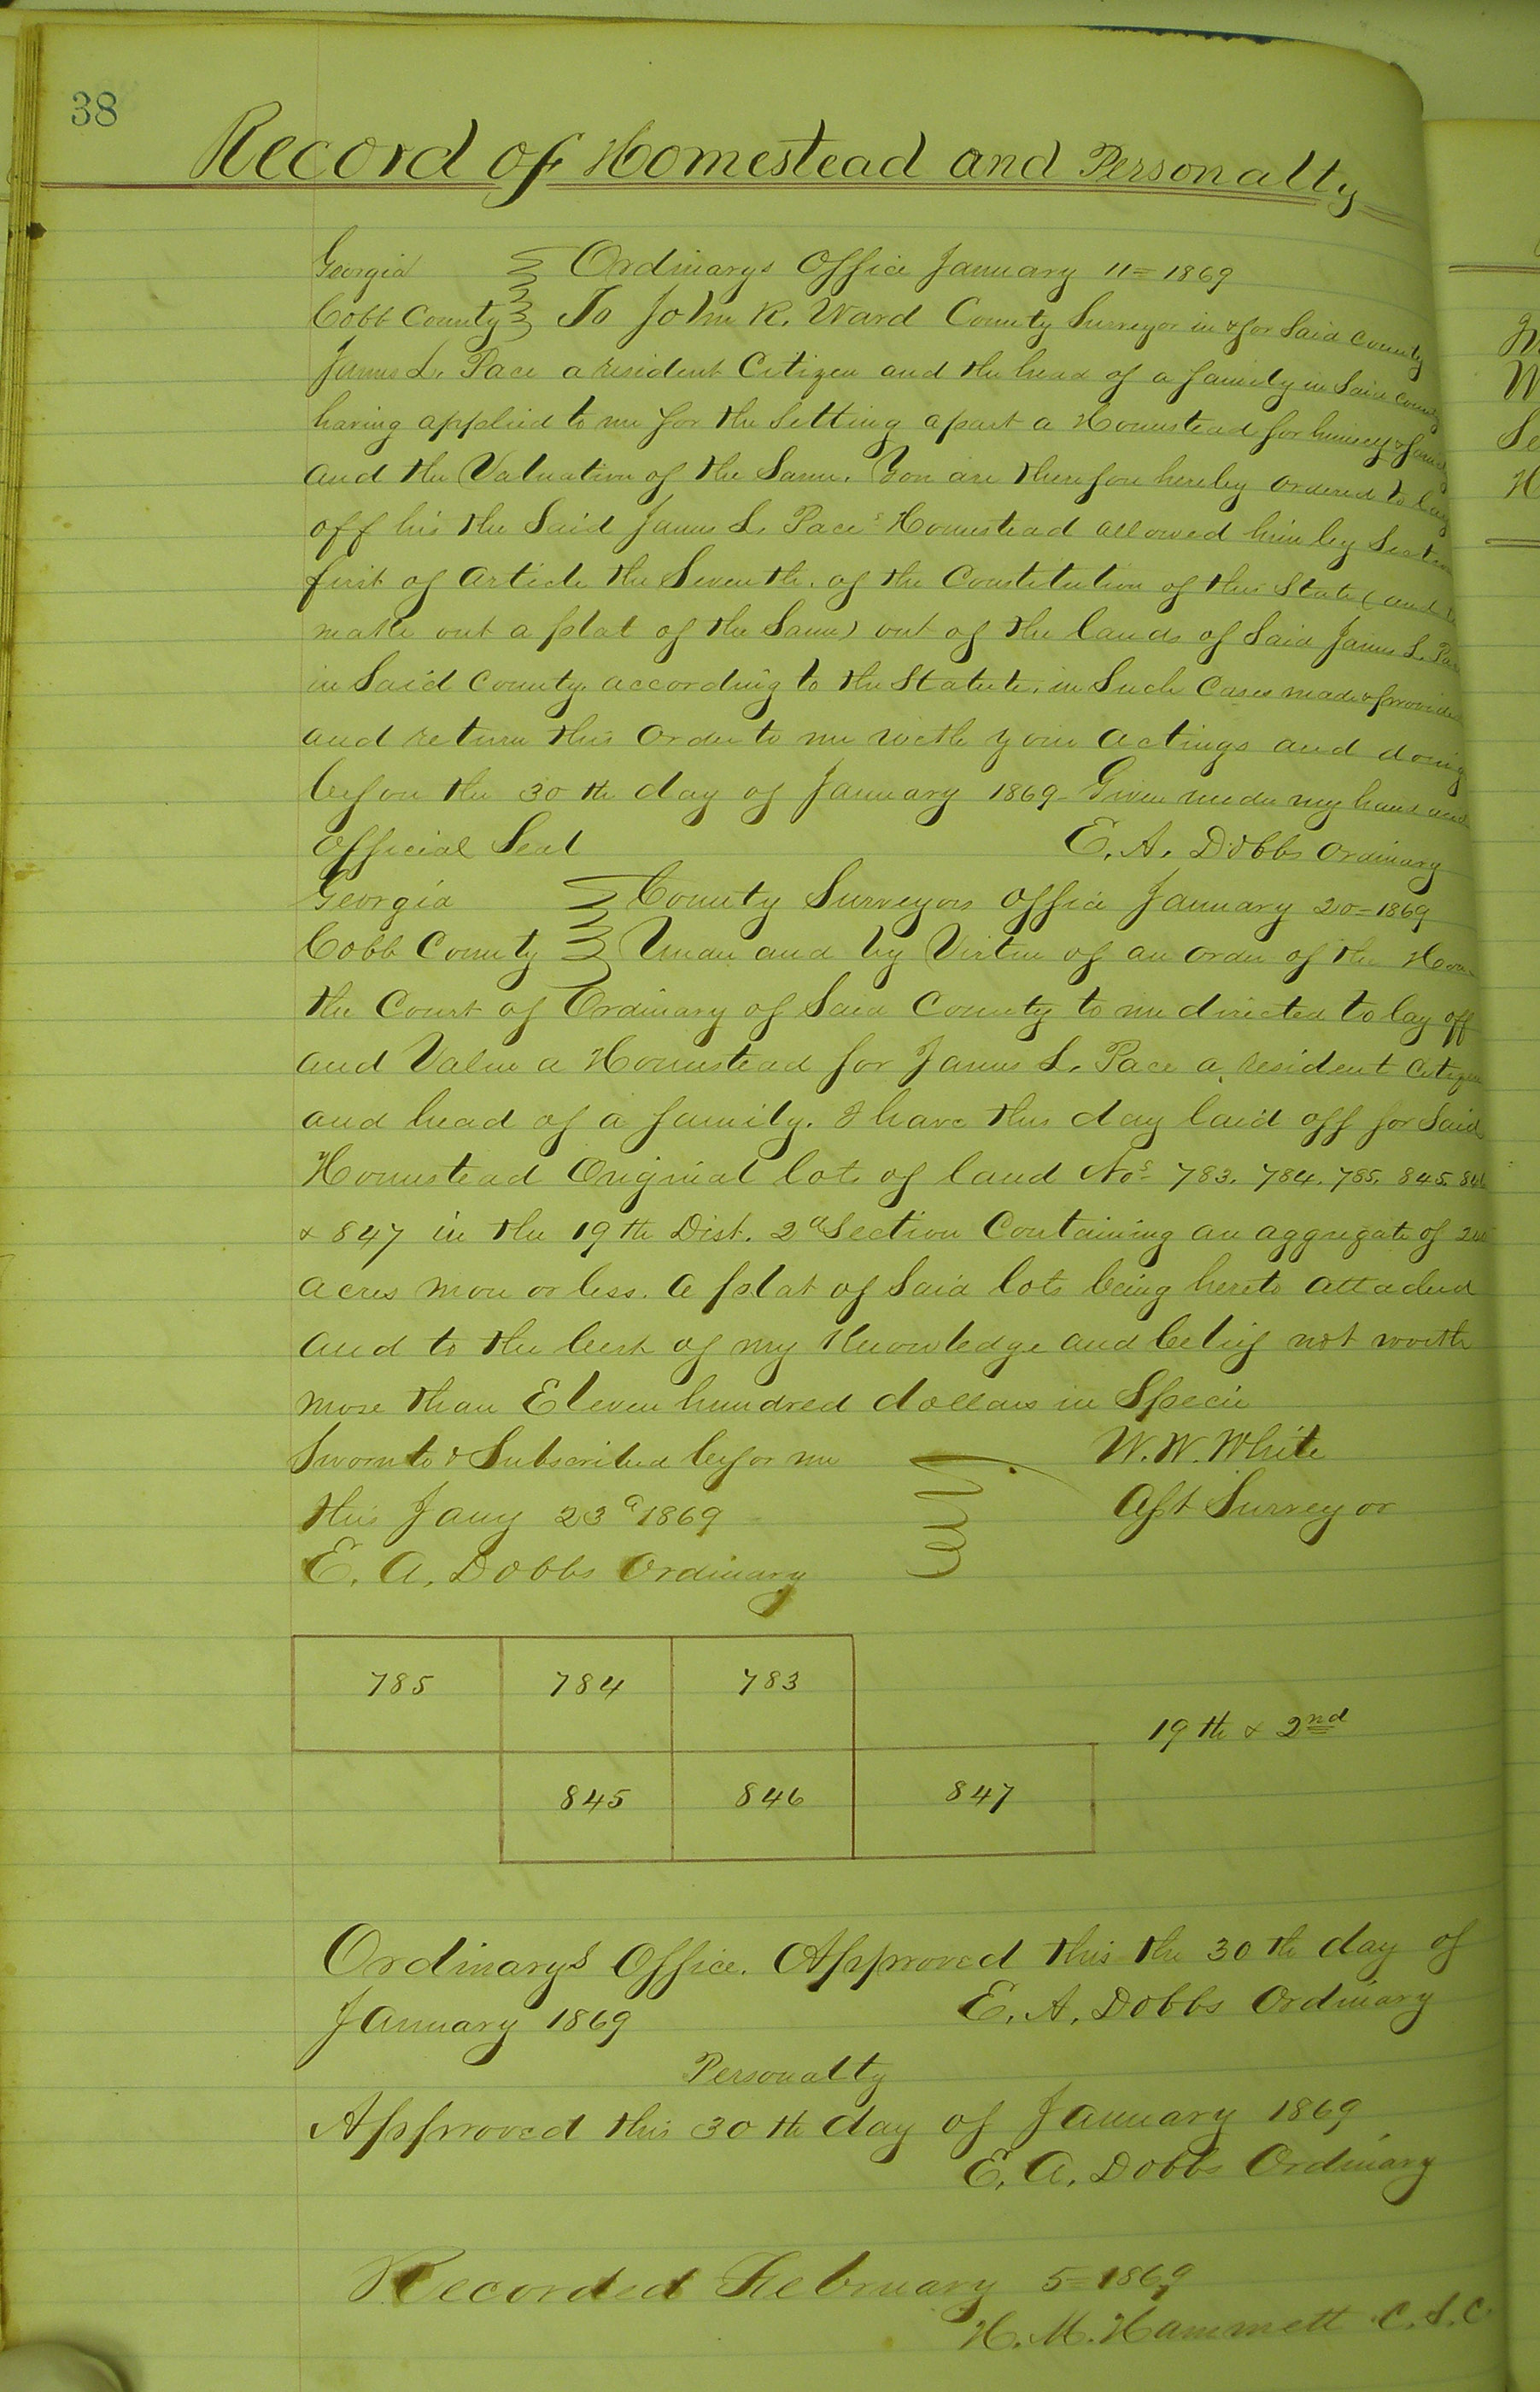 38
Record of Homestead and Personalty
Georgia Ordinarys Office January 11= 1869
Cobb County To John R. Ward County Surveyor in & for Said County
James L. Pace a resident Citizen and the head of a family in Said County
having applied to me for the Setting apart a Homestead for himself & family
and the Valuation of the Same. You are therefore hereby ordered to lay
off his the Said James L. Pace's Homestead allowed him by Section
first of Article the Seventh. of the Constitution of this State (and to
make out a plat of the Same) out of the lands of Said James L. Pace
in Said County. according to the Statute. in Such Cases made & provided
and return this Order to me with your actings and doing
before the 30th day of January 1869- Given under my hand and
Official Seal E. A. Dobbs Ordinary
Georgia County Surveyors Office January 20=1869
Cobb County Under and by Virtue of an order of the
the Court of Ordinary of Said County to me directed to lay off
and Value a Homestead for James L. Pace a resident Citizen
and head of a family. I have this day laid off for Said
Homestead Original lots of land Nos 783. 784. 785. 845. 846
& 847 in the 19th Dist. 2d Section Containing an aggregate of 240
acres more or less. A plat of Said lots being hereto attached
and to the best of my Knowledge and belief not worth
more than Eleven hundred dollars in Specie
Sworn to & Subscribed before me W. W. White
this Jany 23d 1869 Asst Surveyor
E. A. Dobbs Ordinary
785 784 783
19th & 2nd
845 846 847
Ordinarys Office. Approved this the 30th day of
January 1869 E. A. Dobbs Ordinary
Personalty
Approved this 30th day of January 1869
E. A. Dobbs Ordinary
Recorded February 5=1869
H. M. Hammett C. S. C